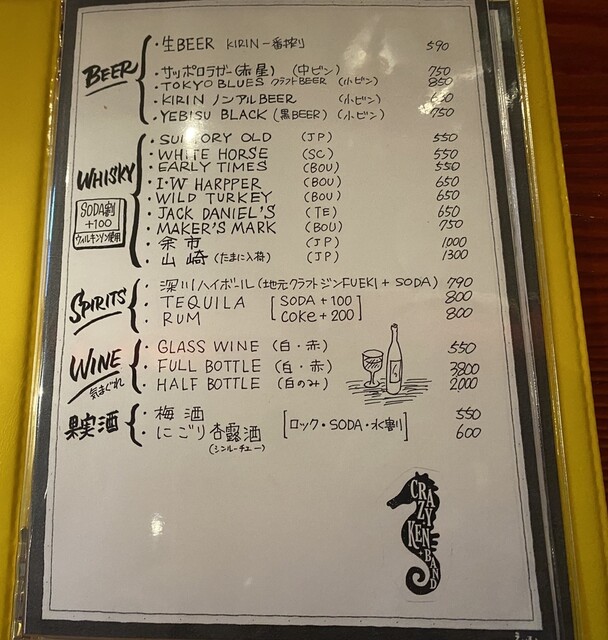 BEER
・生BEER KIRIN一番搾り 590
・サッポロラガー(赤星) (中ビン) 750
・TOKYO BLUES クラフトBEER (小ビン) 850
・KIRIN ノンアルBEER (小ビン)
・YEBISU BLACK (黒BEER) (小ビン) 750
WHISKY
SODA割
+100
ウィルキンソン使用
・SUNTORY OLD (JP) 550
・WHITE HORSE (SC) 550
・EARLY TIMES (BOU) 550
・I・W HARPPER (BOU) 650
・WILD TURKEY (BOU) 650
・JACK DANIEL'S (TE) 650
・MAKER'S MARK (BOU) 750
・余市 (JP) 1000
・山崎 (たまに入荷) (JP) 1300
SPIRITS
・深川ハイボール (地元クラフトジンFUEKI + SODA) 790
・TEQUILA [SODA +100 800
・RUM COKE +200] 800
WINE
気まぐれ
・GLASS WINE (白・赤) 550
・FULL BOTTLE (白・赤) 3800
・HALF BOTTLE (白のみ) 2000
果実酒
・梅酒 550
・にごり杏露酒 [ロック・SODA・水割] 600
(シンルーチュー)
CRAZY KEN BAND